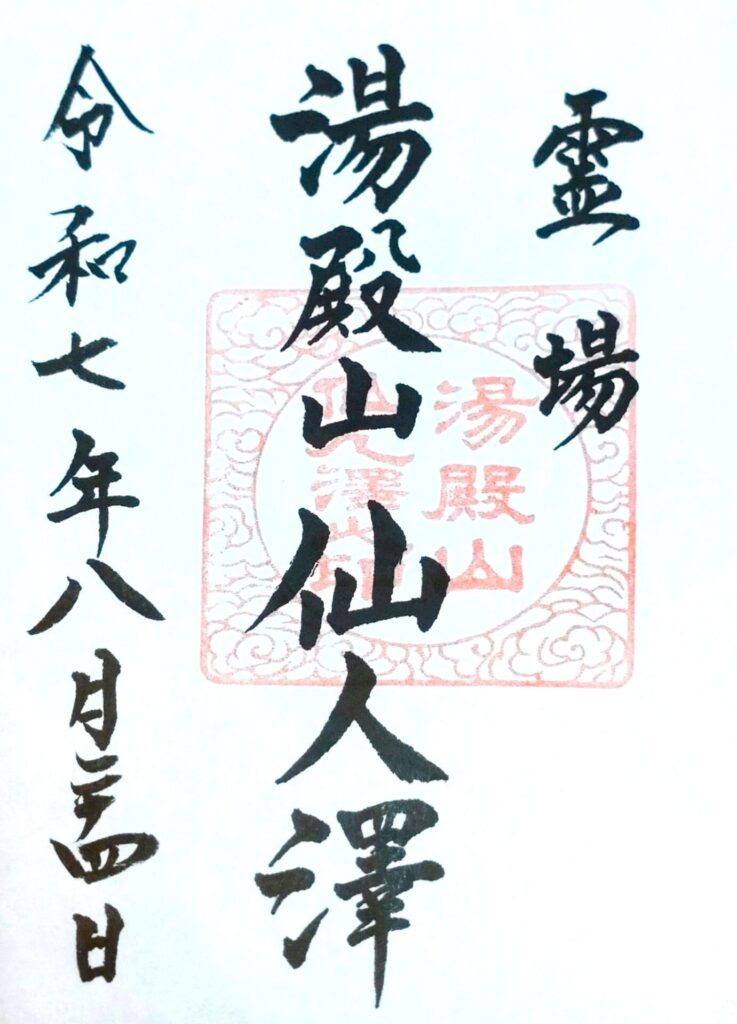 霊場
湯殿山仙人澤
令和七年八月二十四日
湯殿山